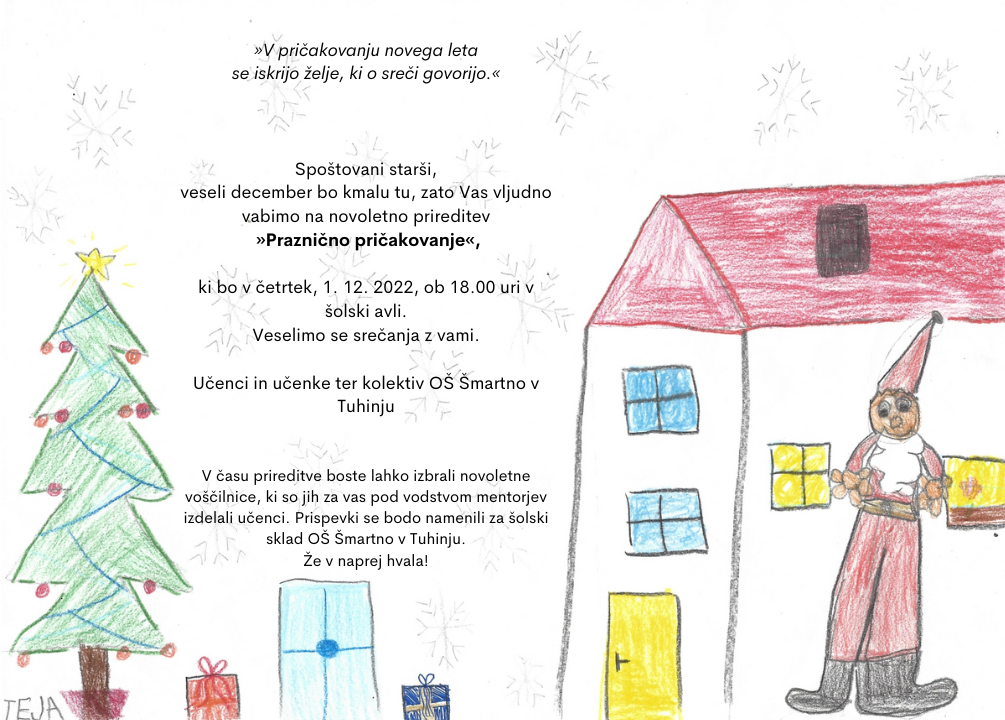 »V pričakovanju novega leta
se iskrijo želje, ki o sreči govorijo.«
Spoštovani starši,
veseli december bo kmalu tu, zato Vas vljudno
vabimo na novoletno prireditev
»Praznično pričakovanje«,
ki bo v četrtek, 1. 12. 2022, ob 18.00 uri v
šolski avli.
Veselimo se srečanja z vami.
Učenci in učenke ter kolektiv OŠ Šmartno v
Tuhinju
V času prireditve boste lahko izbrali novoletne
voščilnice, ki so jih za vas pod vodstvom mentorjev
izdelali učenci. Prispevki se bodo namenili za šolski
sklad OŠ Šmartno v Tuhinju.
Že v naprej hvala!
TEJA